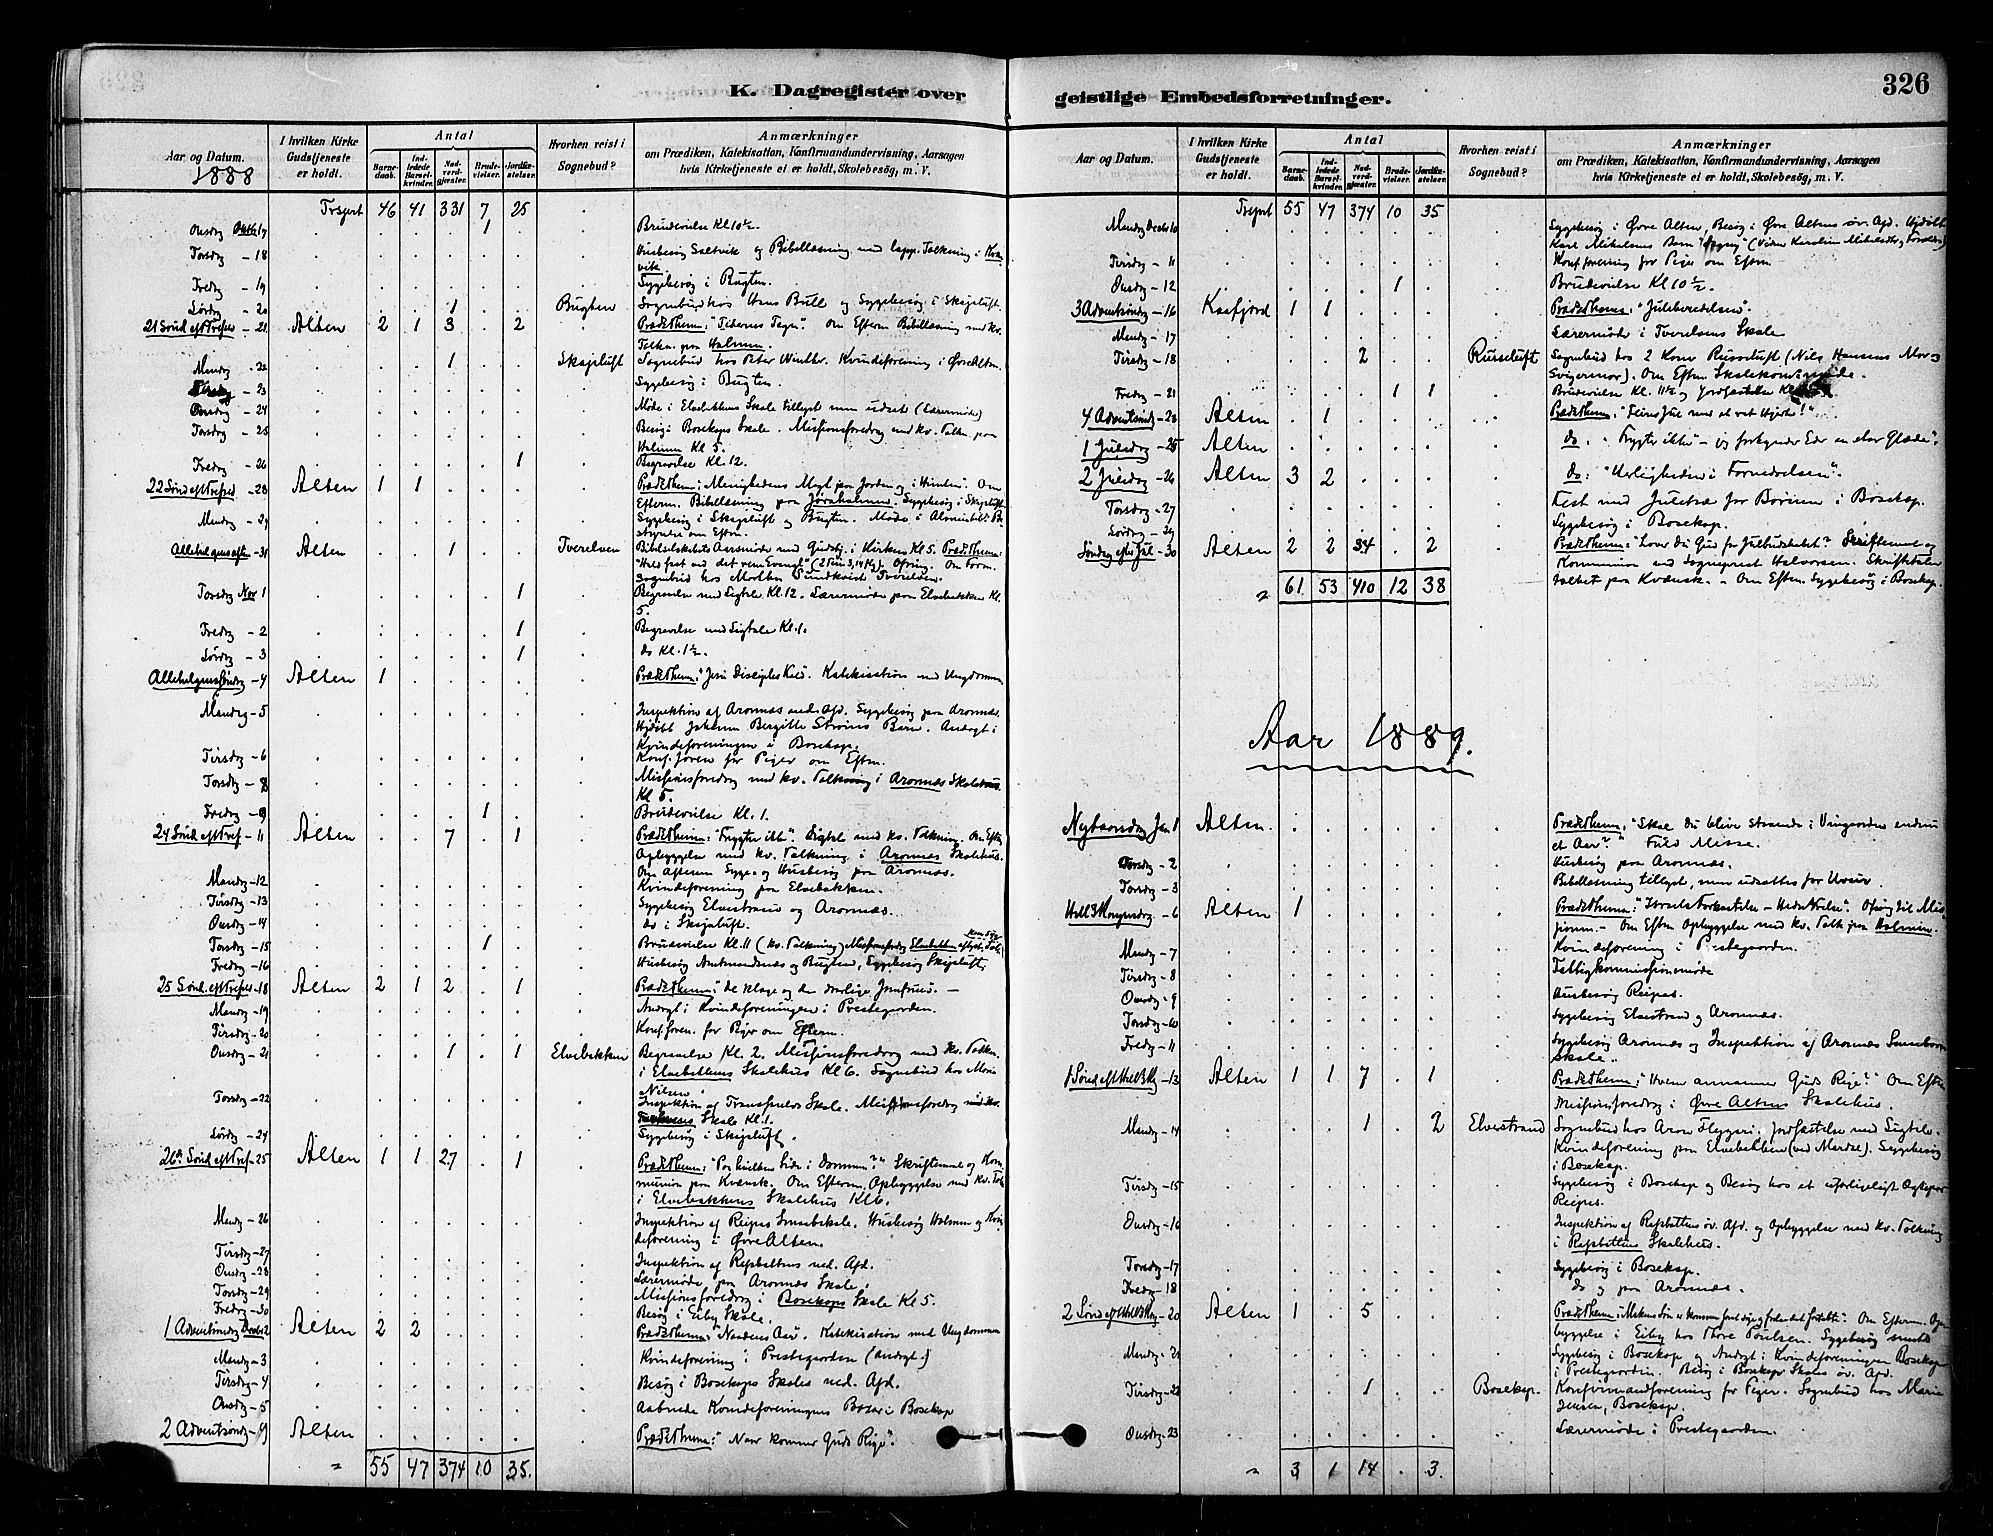 326
K. Dagregister over
geistlige Embedsforretninger.
Aar og Datum.
1888
I hvilken Kirke Gudstjeneste er holdt.
Antal
Barnedaab.
Indledede Barselkvinder.
Nadverdgjæster.
Brudevielser.
Jordfæstelser.
Hvorhen reist i Sognebud?
Anmærkninger
om Prædiken, Katekisation, Konfirmandundervisning, Aarsagen
hvis Kirketjeneste ei er holdt, Skolebesøg, m. V.
Trspt 46 41 331 7 25
Onsdg 17 . . . 1 . . Brudevielse Kl 10½.
Torsdg - 18 Husbesøg Saltvik og Bibellæsning med lapp. Tolkning i
Fredg - 19 Sygebesøg i Bugten.
Lørdg - 20 1 Bugten Sognebud hos Hans Bull og Sygebesøg i Skajsluft.
21 Sønd eft Trefes - 21 Alten 2 1 3 . 2 Prædkthema: "Tidernes Tegn". Om Efterm Bibellæsning med kv.
Tolkn. paa Holmen.
Mandg - 22 1 Skajsluft Sognebud hos Peter Winther. Kvindeforening i Øvre Alten.
- 23 Sygebesøg i Bugten.
Onsdg - 24 Møde i Elvebakkens Skole tillyst men udsat (Lærermøde)
Torsdg - 25 Besøg i Bosekops Skole. Missionsforedrag med kv. Tolkn paa
Holmen Kl 5.
Fredg - 26 1 Begravelse Kl. 12.
22 Sønd eft Trefes - 28 Alten 1 1 Prædkthema: Menighedens Magt paa Jorden og i Himlen". Om
Efterm. Bibellæsning paa Jøraholmen. Sygebesøg i Skajsluft
Mandg - 29 Sygebesøg i Skajsluft og Bugten. Møde i
styrelse om Eftm.
Allehelgensaften - 31 Alten 1 Tverelven Bibelselskabets Aarsmøde med Gudstj. i Kirken Kl 5. Prædkthema:
Torsdg Nov 1 1 Begravelse med Ligtale Kl. 12. Lærermøde paa Elvebakken Kl.
5.
Fredg - 2 1 Begravelse med Ligtale Kl. 1.
Lørdg - 3 1 do Kl. 1½.
Allehelgenssøndg - 4 Alten 1 Prædkthema: "Jesu Disciples Kald. Katekisation med Ungdommen
Mandg - 5 Inspektion af Aronnæs ned. Afd. Sygebesøg paa Aronnæs.
Hjdøbt Johanna Bergitte Strøms Barn. Andagt i
Kvindeforeningen i Bosekop.
Tirsdg - 6 Konf. foren for Piger om Eftm.
Torsdg - 8 Missionsforedrag med kv. Tolkning i Aronnæs Skolehus
Kl 5.
Fredg - 9 1 Brudevielse Kl. 1.
24 Sønd eft Tref - 11 Alten 7 . 1 Prædkthema: "Frygter ikke". Ligtale med kv. Tolkning. Om Eftm
Opbyggelse med kv. Tolkning i Aronnæs Skolehus.
Mandg - 12 Om Afterm Syge- og Husbesøg paa Aronnæs.
Kvindeforening paa Elvebakken.
Tirsdg - 13 Sygebesøg Elvestrand og Aronnæs.
Onsdg - 14 do i Skajsluft.
Torsdg - 15 1 Brudevielse Kl. 11 (kv. Tolkning) Missionsforedrag Elvebakken
Fredg - 16 Husbesøg Amtmandsnæs og Bugten, Sygebesøg Skajsluft.
25 Sønd. eft Trefes - 18 Alten 2 1 2 . 1 Prædkthema: "de kloge og de daarlige Jomfruer. -
Mandg - 19 Andagt i Kvindeforeningen i Prestegaarden.
Tirsdg - 20 Konf. foren. for Piger om Efterm.
Onsdg - 21 1 . 1 Elvebakken Begravelse Kl. 2. Missionsforedrag med kv. Tolkn.
i Elvebakkens Skolehus Kl 6. Sognebud hos Marie
Nilsen.
Torsdg - 22 Inspektion af Skole. Missionsforedrag med kv.
Skole Kl. 1.
Lørdg - 24 Sygebesøg i Skajsluft.
26de Sønd eft Tref - 25 Alten 1 1 27 . 1 Prædkthema: "Paa hvilken Side i Dommen?" Skriftemaal og Kom
munion paa Kvænsk. Om Efterm. Opbyggelse med kv. Tolk
i Elvebakkens Skolehus Kl 6.
Mandg - 26 Inspektion af Reipas Smaabskole. Husbesøg Holmen og Kvin
deforening i Øvre Alten.
Tirsdg - 27 Inspektion af Refsbottens ned. Afd.
Onsdg - 28 Lærermøde paa Aronnæs Skole.
Torsdg - 29 Missionsforedrag i Bosekops Skole Kl 5.
Fredg - 30 Besøg i Eiby Skole.
1 Adventsøndg Decbr 2 Alten 2 2 Prædkthema: "Naadens Aar". Katekisation med Ungdommen
Mandg - 3 Kvindeforening i Prestegaarden (Andagt.)
Tirsdg - 4 Besøg i Bosekops Skoles ned. Afd.
Onsdg - 5 Aabnede Kvindeforeningens Bazar i Bosekop
2 Adventsøndg - 9 Alten Prædkthema: "Naar kommer Guds Rige".
" 55 47 374 10 35.
Aar og Datum.
I hvilken Kirke Gudstjeneste er holdt.
Antal
Barnedaab.
Indledede Barselkvinder.
Nadverdgjæster.
Brudevielser.
Jordfæstelser.
Hvorhen reist i Sognebud?
Anmærkninger
om Prædiken, Katekisation, Konfirmandundervisning, Aarsagen
hvis Kirketjeneste ei er holdt, Skolebesøg, m. V.
Trspt 55 47 374 10 35
Mandg Decbr 10 Sygebesøg i Øvre Alten, Besøg i Øvre Altens øv. Afd. Hjdøbt
Karl Mikelsens Barn
Tirsdg - 11 Konf. forening for Piger om Eftm.
Onsdg - 12 1 Brudevielse Kl 10½.
3 Adventsøndg - 16 Kaafjord 1 1 Prædkthema: "Juleberedelsen".
Mandg - 17 Lærermøde i Tverelvens Skole
Tirsdg - 18 2 Russeluft Sognebud hos 2 Koner Russeluft (Nils Hansens Mor og
Svigermor). Om Eftm Skolekommmøde.
Fredg - 21 1 1 Brudevielse Kl. 11½ og Jordfæstelse Kl
4 Adventsøndg - 23 Alten . 1 Prædkthema: "Feire Jul med et ret Hjerte!"
1 Juledag - 25 Alten do. "Frygter ikke - jeg forkynder Eder en stor Glæde".
2 Juledag - 26 Alten 3 2 do: "Herligheden i Fornedrelsen".
Torsdg - 27 Fest med Juletræ for Børnene i Bosekop.
Lørdg - 29 Sygebesøg i Bosekop.
Søndag efter Jul - 30 Alten 2 2 34 . 2 Prædkthema: "Lover du Gud for Julebudskabet? Skriftemaal og
Kommunion ved Sogneprest Halvorsen. Skriftetalen
tolket paa Kvænsk. - Om Eftm. Sygebesøg i Bosekop.
" 61 53 410 12 38
Aar 1889.
Nytaarsdag Jan 1 Alten. Prædkthema: "Skal du blive staaende i Vingaarden endnu
et Aar?" Fuld Messe.
Onsdg - 2 Husbesøg paa Aronnæs.
Torsdg - 3 Bibellæsning tillyst, men udsattes for Uveir.
Hell 3 Kongersdag - 6 Alten 1 Prædkthema: "Israels Forkastelse - Hedn Frelse". Ofring til Mis
sionen. - Om Eftm Opbyggelse med kv. Tolk paa Holmen.
Mandg - 7 Kvindeforening i Prestegaarden.
Tirsdg - 8 Fattigkommissionsmøde
Onsdg - 9 Husbesøg Reipas.
Torsdg - 10 Sygebesøg Elvestrand og Aronnæs.
Fredg - 11 Sygebesøg Aronnæs og Inspektion af Aronnæs
Skole.
1 Sønd eft Hell 3 Kg - 13 Alten 1 1 7 . 1 Prædkthema: "Hvem annammer Guds Rige?" Om Eftm
Missionsforedrag i Øvre Altens Skolehus.
Mandg - 14 1 . 2 Elvestrand Sognebud hos Aron Jordfæstelse med Ligtale.
Kvindeforening paa Elvebakken (ved Sygebesøg
i Bosekop.
Tirsdg - 15 Sygebesøg i Bosekop og Besøg hos et uforligeligt Ægtepar
Reipas.
Onsdg - 16 Inspektion af Refsbottens øv. Afd. og Opbyggelse med kv. Tolkning
i Refsbottens Skolehus.
Torsdg - 17 Sygebesøg i Bosekop.
Fredg - 18 do og paa Aronnæs.
2 Sønd eft Hell 3 Kg - 20 Alten 1 . 5 Prædkthema: Om Efterm. Op
byggelse i Eiby hos Thore Poulsen. Sygebesøg
Mandg - 21 Sygebesøg i Bosekop og Andagt i Kvindeforeningen Bosekop
i Prestegaarden. Besøg i Bosekops Skoles øv. Afd.
Tirsdg - 22 1 Bosekop. Konfirmandforening for Piger. Sognebud hos Marie
Jensen, Bosekop.
Onsdg - 23 Lærermøde i Prestegaarden.
" 3 1 14 . 3.